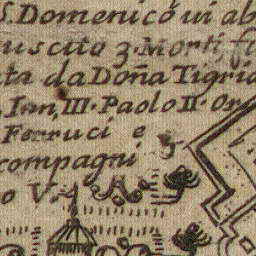 S. Domenicó ui ab
uscito 3. Morti, fe
ta da Doña Tigria
Inn, III. Paolo II. Or
Ferruci e
compagni
o V.
A